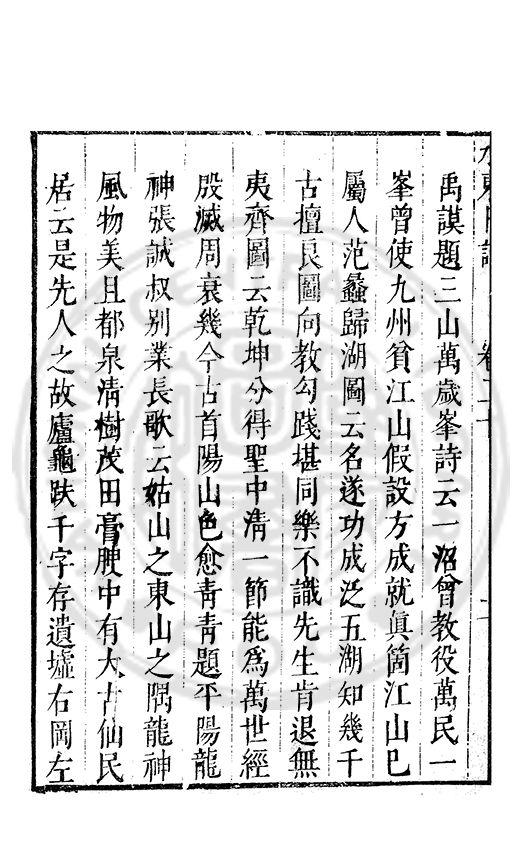 禹謨題三山萬歲峯詩云一沼曾教役萬民一
峯曾使九州貧江山假設方成就眞箇江山已
屬人范蠡歸湖圖云名遂功成泛五湖知幾千
古擅良圖向教勾踐堪同樂不識先生肯退無
夷齊圖云乾坤分得聖中清一節能爲萬世經
殷滅周衰幾今古首陽山色愈青青題平陽龍
神張誠叔别業長歌云姑山之東山之隅龍神
風物美且都泉清樹茂田膏腴中有大古仙民
居云是先人之故廬龜趺千字存遺墟右岡左